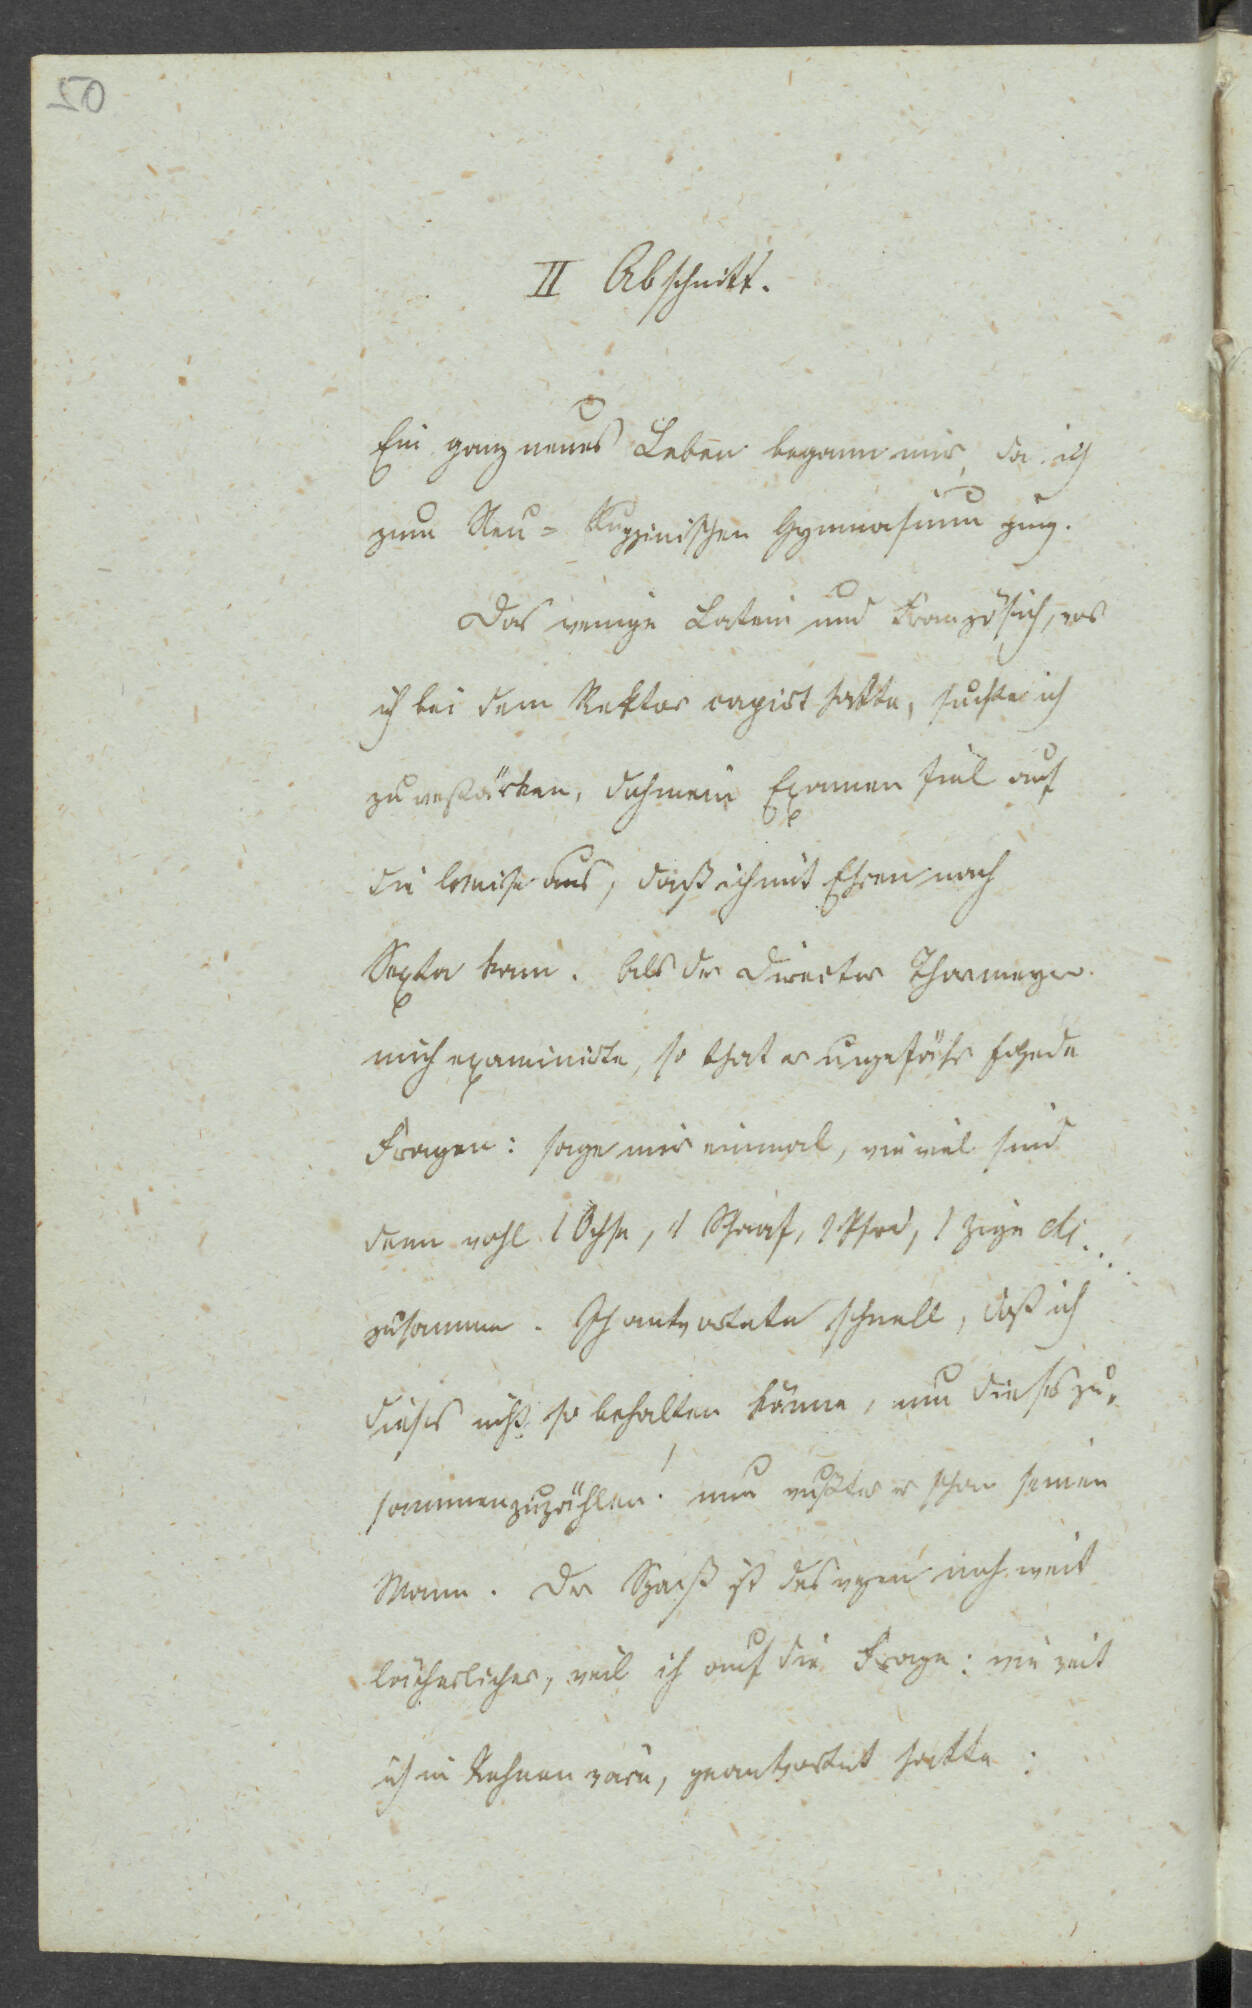 50
II Abschnitt.
Ein ganz neues Leben begann mir, da ich
zum Neu-Ruppinischen Gymnasium ging.
Das wenige Latein und Französich, was
ich bei dem Rektor capirt hatte, suchte ich
zu verstärken, doch mein Examen fiel auf
die Weise aus, daß ich mit Ehren nach
Sexta kam. Als der Director Thormeyer
mich examinirte, so that er ungefähr folgede
Fragen: sage mir einmal, wie viel sind
denn wohl 1 Ochse, 1 Schaaf, 1 Pferd, 1 Zige etc...
zusamme. Ich antwortete schnell, daß ich
dieses nicht so behalten könne, um dieses zu-
sammenzuzählen! nun wußte er schon seinen
Mann. Der Spaß ist deswegen noch weit
lächerlicher, weil ich auf die Frage: wie weit
ich im Rechnen wäre, geantwortet hatte: